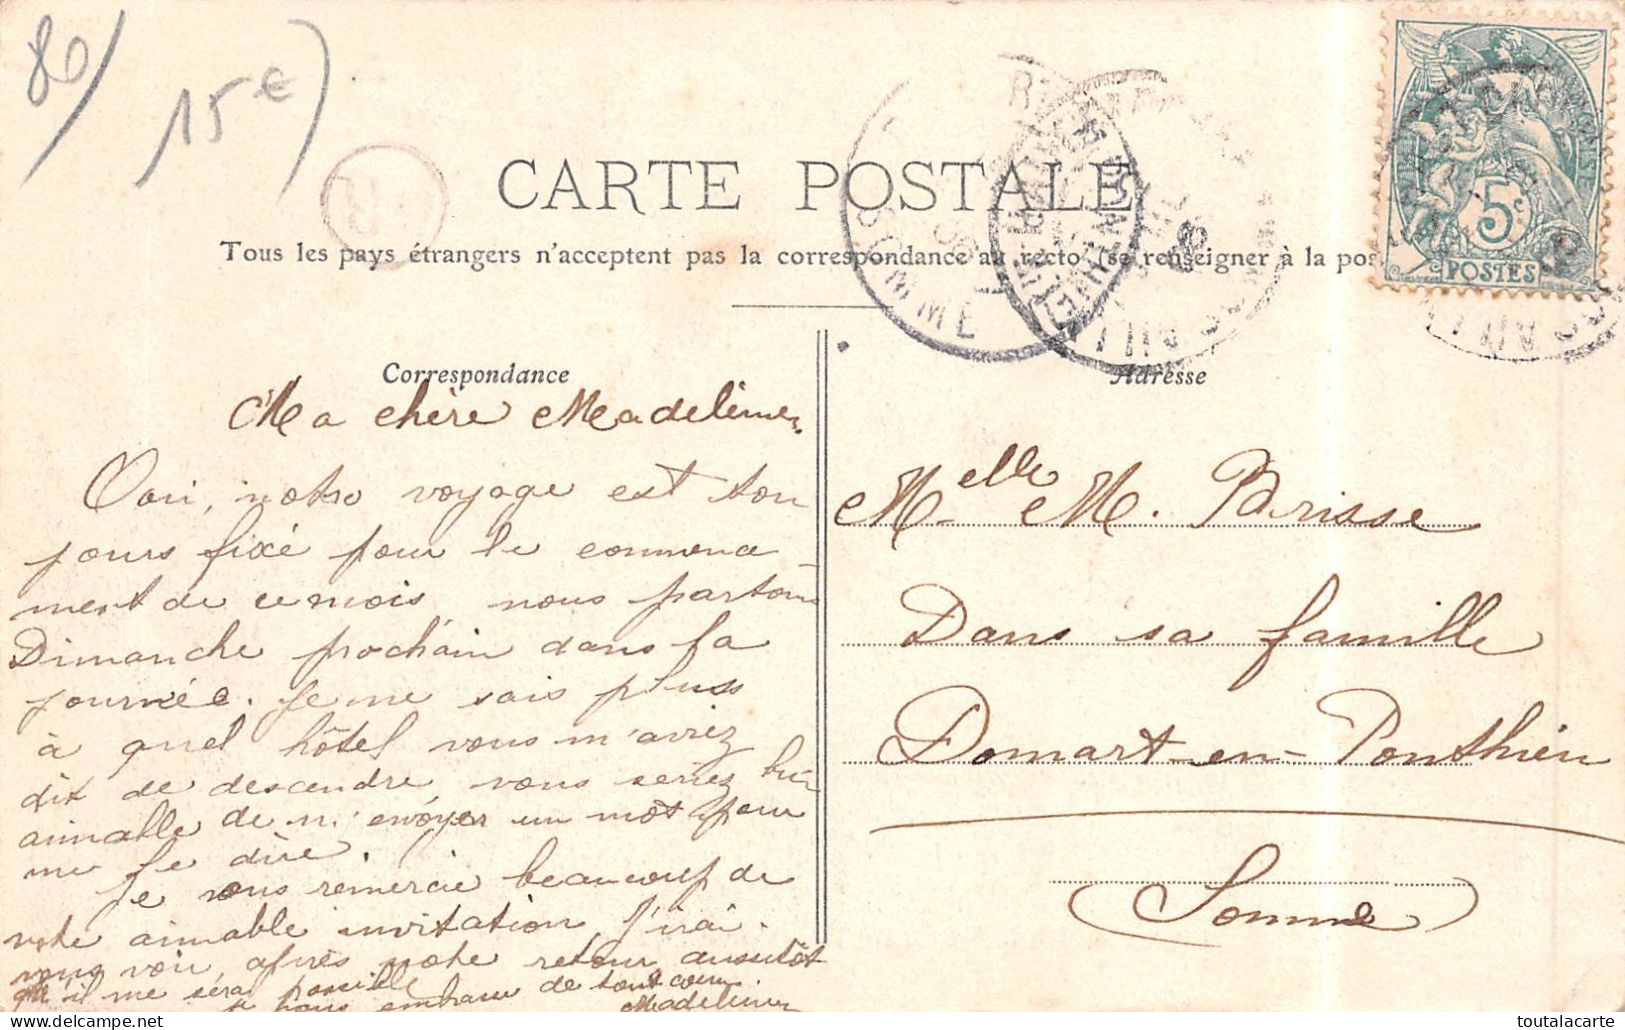 80/
15€)
R
CARTE POSTALE
Tous les pays étrangers n'acceptent pas la correspondance au recto (se renseigner à la pos
5c
POSTES
SOMME
Correspondance
Ma chère Madeleine,
Oui, notre voyage est tou
jours fixé pour le commence
ment de ce mois, nous partons
Dimanche prochain dans la
journée. Je ne sais pluss
à quel hôtel vous m'aviez
dit de descendre, vous seriez bien
aimable de m'envoyer un mot pour
me le dire.
Je vous remercie beaucoup de
votre aimable invitation, j'irai
vous voir, après votre retour aussitôt
qu'il me sera possible
je vous embrasse de tout cœur
Madeleine
Adresse
Melle M. Brisse
Dans sa famille
Domart-en-Ponthieu
(Somme)
toutalacarte